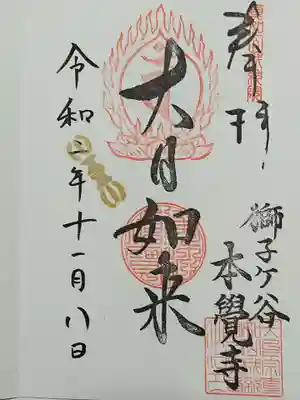 奉拝
大日如来
獅子ケ谷
本覺寺
令和二年十一月八日